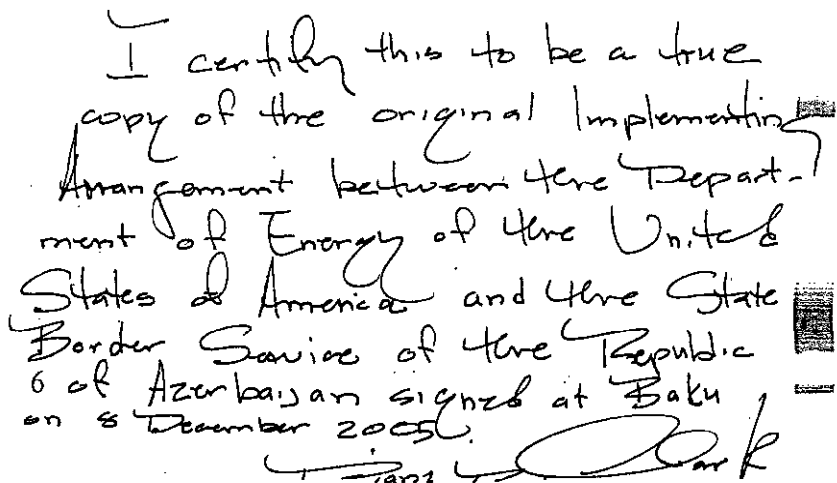 I certify this to be a true
copy of the original Implementing
Arrangement between the Depart-
ment of Energy of the United
States of America and the State
Border Service of the Republic
of Azerbaijan signed at Baku
on 8 December 2005.